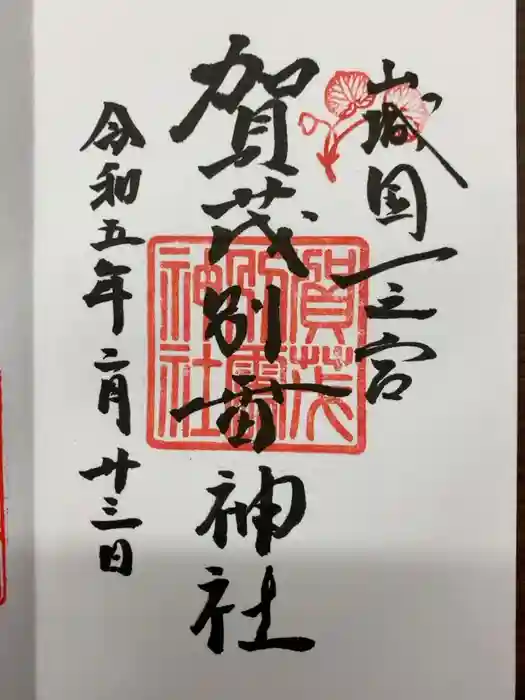 山城国一之宮
賀茂別雷神社
賀茂別雷神社
令和五年二月廿三日